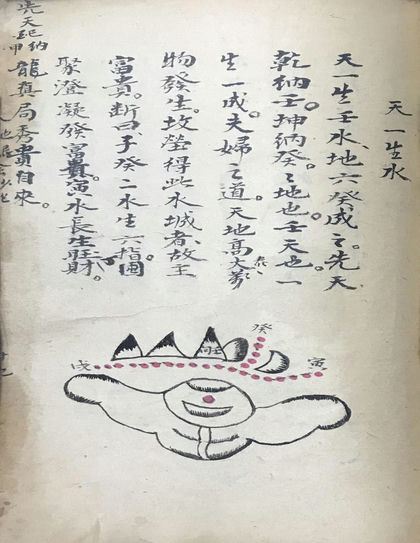 天一生水
天一生壬水、地六癸成之。先天
乾納壬。坤納癸。之地也。壬天也。一
生一成。夫婦之道。天地高大萬
物發生。坟塋得此水城者、故主
富貴。断曰、子癸二水生六指圖
聚澄凝發富貴。寅水長生旺財。
龍真局秀貴自來。
先天
納
甲
癸
寅
戌